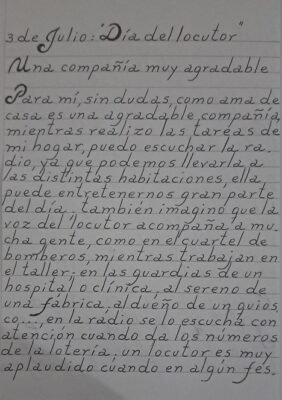 3 de Julio: "Día del locutor"
Una compañía muy agradable
Para mí, sin dudas, como ama de
casa es una agradable compañía,
mientras realizo las tareas de
mi hogar, puedo escuchar la ra-
dio, ya que podemos llevarla a
las distintas habitaciones, ella
puede entretenernos gran parte
del día, también imagino que la
voz del locutor acompaña a mu-
cha gente, como en el cuartel de
bomberos, mientras trabajan en
el taller, en las guardias de un
hospital o clínica, al sereno de
una fábrica, al dueño de un quios
co..., en la radio se lo escucha con
atención cuando da los números
de la lotería, un locutor es muy
aplaudido cuando en algún fes-